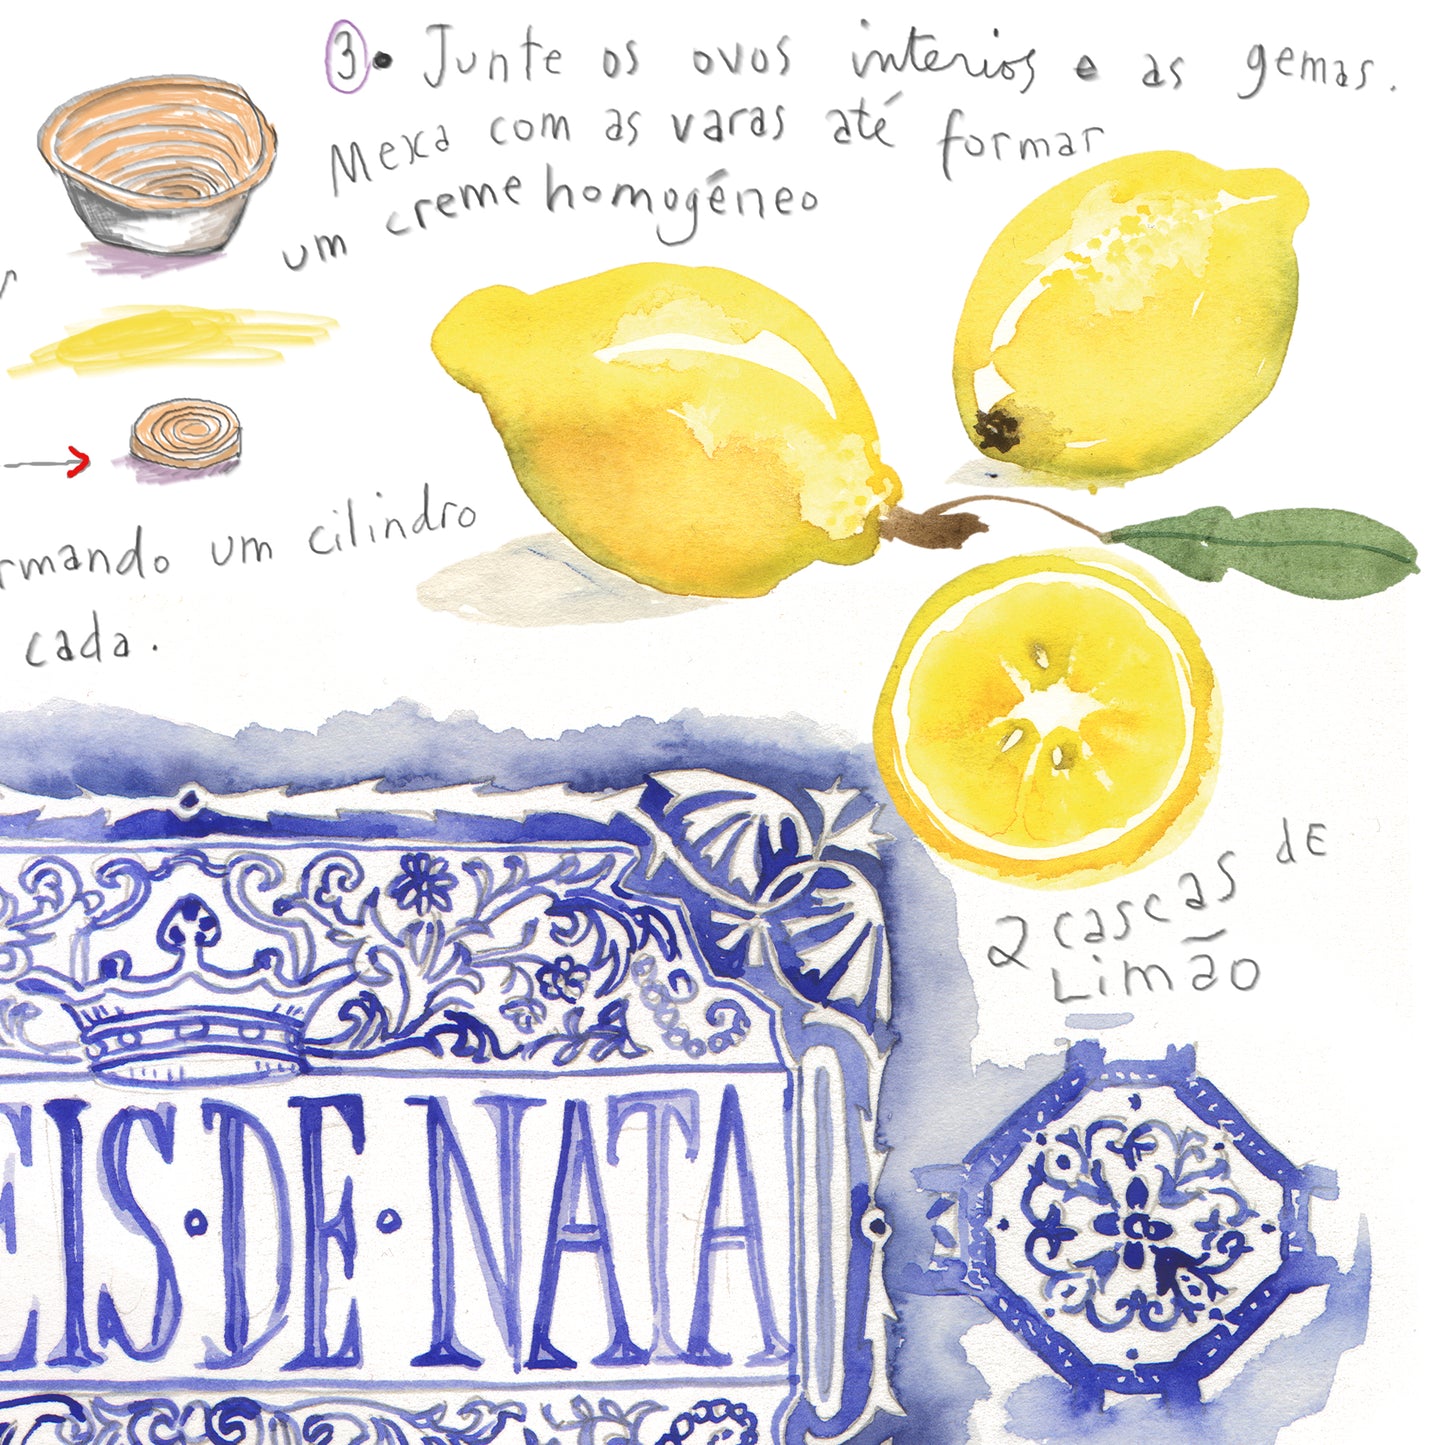 3. Junte os ovos interios e as gemas.
Mexa com as varas até formar
um creme homogéneo
rmando um cilindro
cada.
2 cascas dE
Limão
EIS·DE·NATA